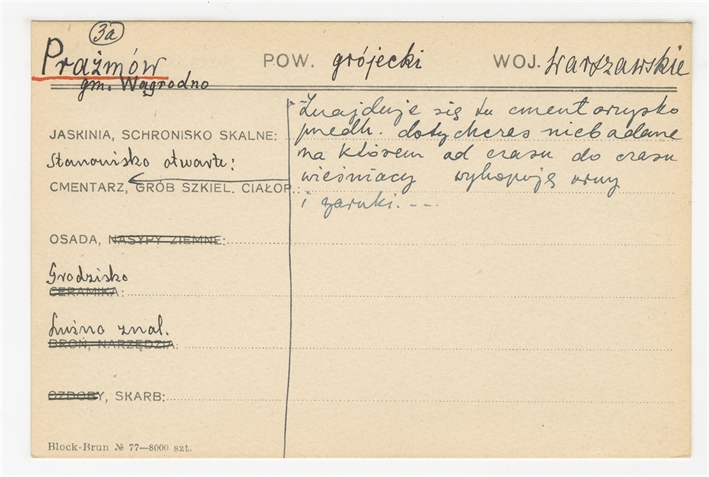 3a
Prażmów POW. grójecki WOJ. Warszawskie
gm. Wągrodno
Znajduje się tu cmentarzysko
przedh. dotychczas niebadane
na którem od czasu do czasu
wieśniacy wykopują urny
i garnki. - - -
JASKINIA, SCHRONISKO SKALNE:
Stanowisko otwarte:
CMENTARZ, GRÓB SZKIEL. CIAŁOP.:
OSADA, NASYPY ZIEMNE:
Grodzisko
CERAMIKA:
Luźno znal.
BROŃ, NARZĘDZIA:
OZDOBY, SKARB:
Block-Brun № 77—8000 szt.